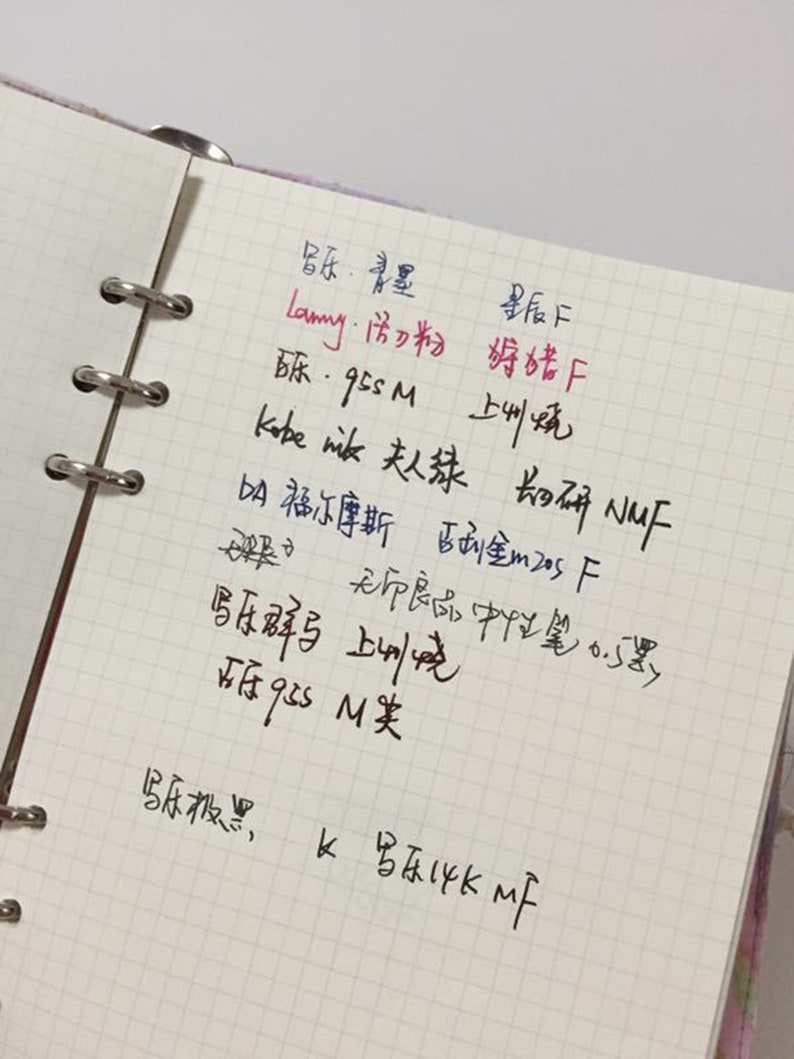 写乐·青墨 星辰F
Lamy·活力粉 狩猎F
百乐·95S M 上州烧
Kobe ink 夫人绿 长刀研NMF
DA 福尔摩斯 百利金m205 F
无印良品中性笔0.5黑
写乐群马 上州烧
百乐95S M尖
写乐极黑 K 写乐14K MF